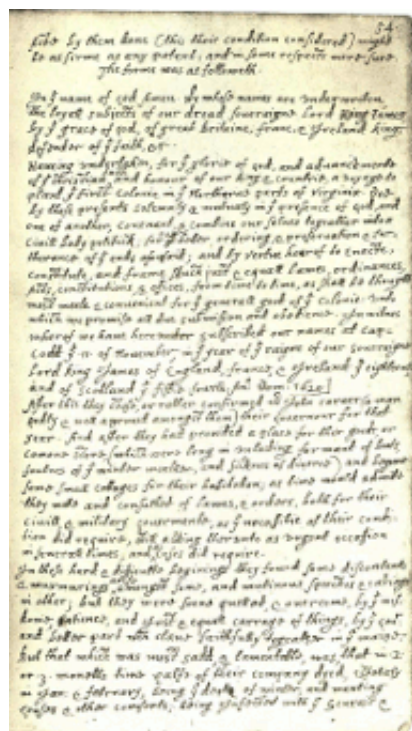 54.
side by them done (this their condition considered) might
be as firme as any patent; and in some respects more sure.
The forme was as followeth.
In yͤ name of god Amen. We whose names are underwriten,
the loyall subjects of our dread soveraigne Lord King James
by yͤ grace of god, of great Britaine, franc, & Ireland king,
defender of yͤ faith, &c
Haveing undertaken, for yͤ glorie of god, and advancemente
of yͤ christian and honour of our king & countrie, a voyage to
plant yͤ first colonie in yͤ Northerne parts of Virginia. Doe
by these presents solemnly & mutualy in yͤ presence of god, and
one of another, covenant, & combine our selves togeather into a
Civill body politick; for our better ordering, & preservation & fur-
therance of yͤ ends aforesaid; and by vertue hearof to enacte,
constitute, and frame shuch just & equall Lawes, ordinances,
Acts, constitutions, & offices, from time to time, as shall be thought
most meete & convenient for yͤ generall good of yͤ colonie: unto
which we promise all due submission and obedience. In witnes
wherof we have hereunder subscribed our names at Cap-
Codd yͤ .11. of November, in yͤ year of yͤ raigne of our soveraigne
Lord king James of England, franc, & Ireland yͤ eighteenth
and of Scotland yͤ fiftie fourth. Ano: Dom. 1620.]
After this they chose, or rather confirmed mr John carver (a man
godly & well approved amongst them) their Governour for that
year. And after they had provided a place for their goods, or
comone store, (which were long in unlading for want of boats,
foulnes of yͤ winter weather, and sicknes of diverce) and begune
some small cottages for their habitation; as time would admitte
they mette and consulted of lawes, & orders, both for their
civill & military Govermente, as yͤ necessitie of their condi-
tion did require, still adding therunto as urgent occasion
in severall times, and cases did require.
In these hard & difficulte beginings they found some discontents
& murmurings arise amongst some, and mutinous speeches & carriags
in other; but they were soone quelled, & overcome, by yͤ wis-
dome, patience, and just & equall carrage of things, by yͤ Govr
and better part wch clave faithfully togeather in yͤ maine.
But that which was most sadd, & lamentable, was, that in .2.
or .3. moneths time halfe of their company dyed, espetialy
in Jan: & february, being yͤ depth of winter, and wanting
houses & other comforts; being infected with yͤ scurvie &